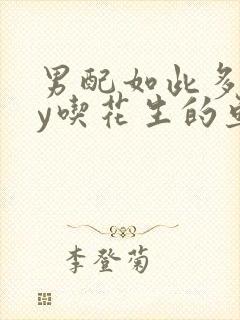 男配如此多
y喫花生的
李登菊